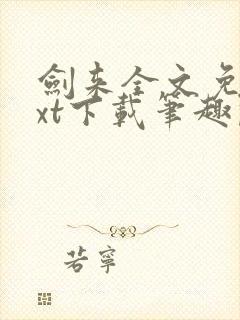 劍来全文免
xt下載筆趣
若寧